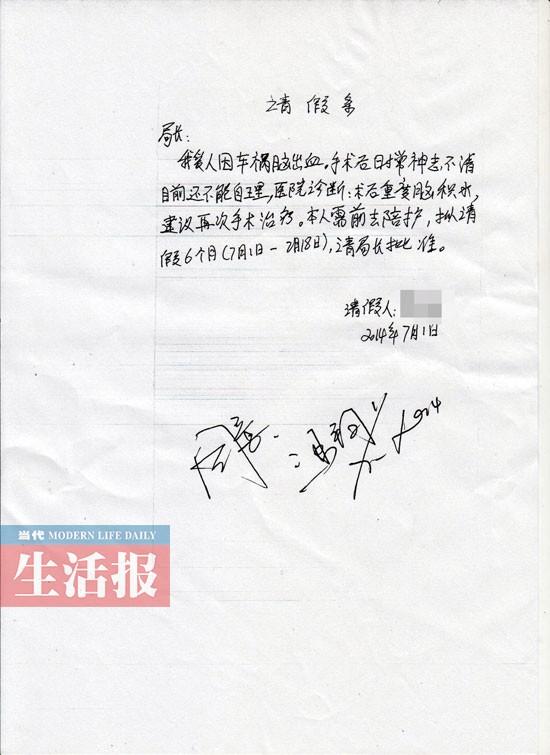 请假条
局长:
我爱人因车祸脑出血。手术后日常神志不清
目前还不能自理,医院诊断:术后重度脑积水,
建议再次手术治疗。本人需前去陪护,拟请
假6个月(7月1日-7月18日),请局长批准。
请假人:
2014年7月1日
同意
当代 MODERN LIFE DAILY
生活报